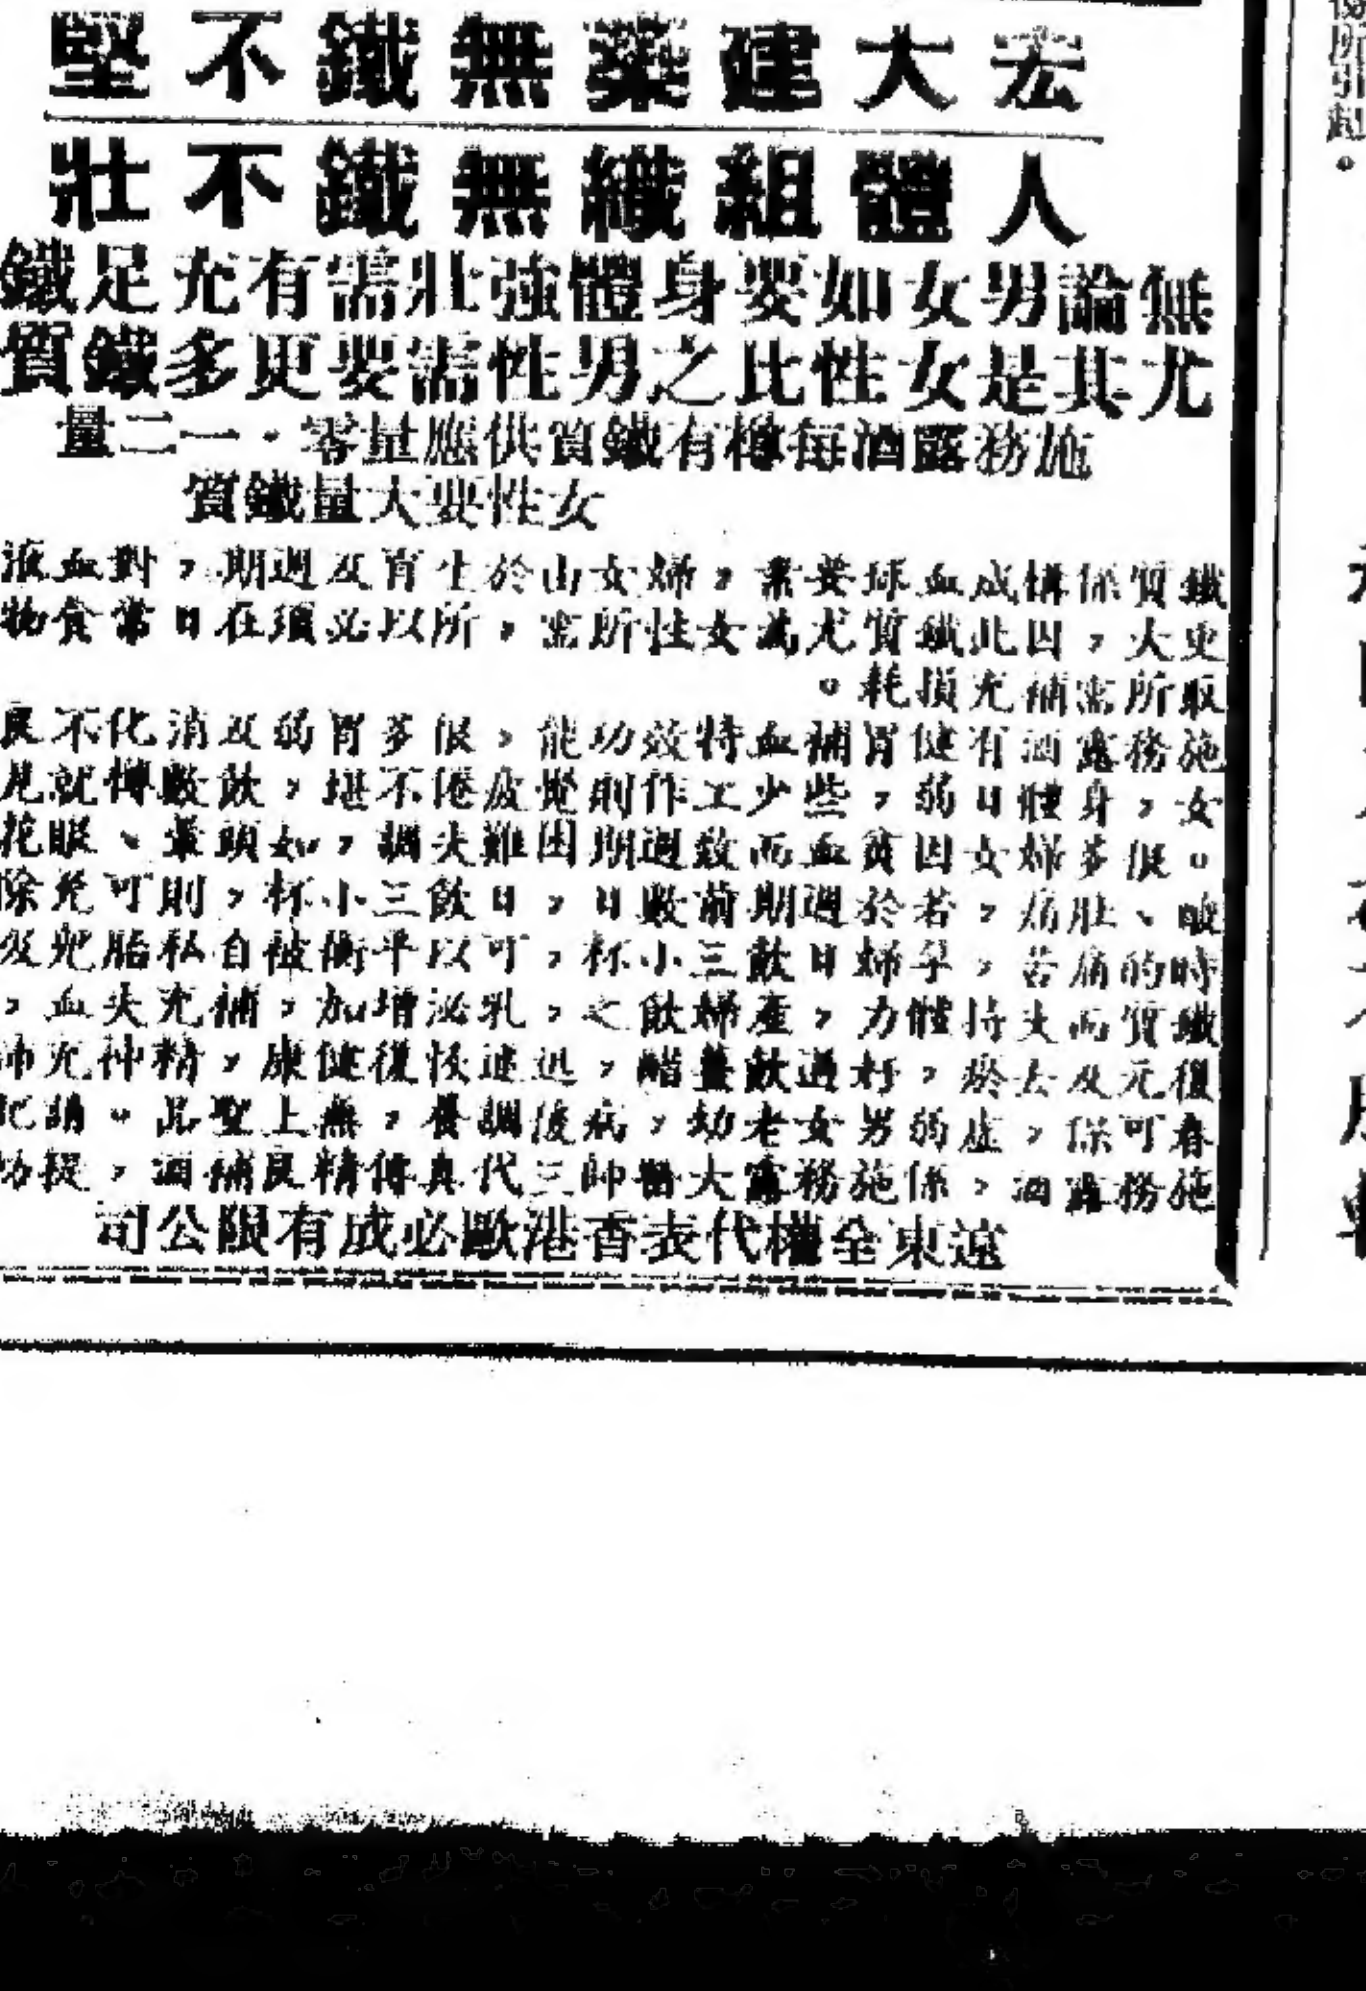 宏大建築無鐵不堅
人體組織無鐵不壯
無論男女如要身體強壯需有充足鐵
尤其是女性比之男性需要更多鐵質
施務露酒每樽有鐵質供應量零·一二量
女性要大量鐵質
鐵質係構成血球要素，婦女由於生育及週期，對血液
更大，因此鐵質尤為女性所需，所以必須在日常食物
取所需補充損耗。
施務露酒有健胃補血特效功能，很多胃弱及消化不良
女，身體日弱，些少工作則覺疲倦不堪，飲數樽就見
。很多婦女因貧血而致週期困難失調，如頭暈、眼花
酸、肚痛，若於週期前數日，日飲三小杯，則可免除
時的痛苦，孕婦日飲三小杯，可以平衡被自私胎兒吸
鐵質而支持體力，產婦飲之，乳泌增加，補充失血，
復元及去瘀，好過飲薑醋，迅速恢復健康，精神充沛
春可保，虛弱男女老幼，病後調養，無上聖品。請記
施務露酒，係施務露大醫師三代真傳精良補酒，提防
遠東全權代表香港歐必成有限公司
所引起。